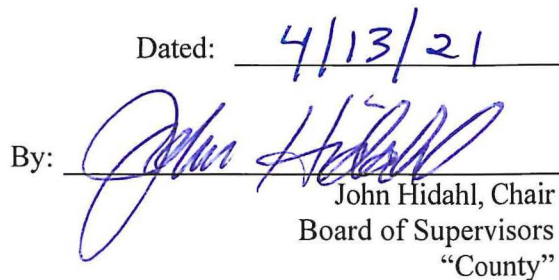 Dated: 4/13/21
By: John Hidahl
John Hidahl, Chair
Board of Supervisors
“County”